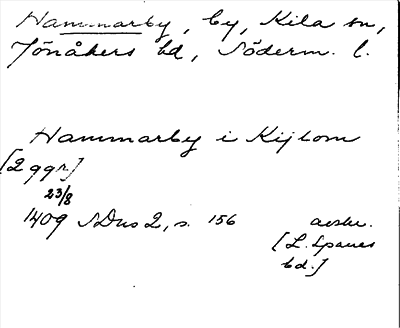 Hammarby, by, Kila sn,
Jönåkers hd, Söderm. l.
Hammarby i Kijlom
[2 ggr]
23/8
1409 SDns 2, s. 156 avskr.
[L. Spanes
bd.]